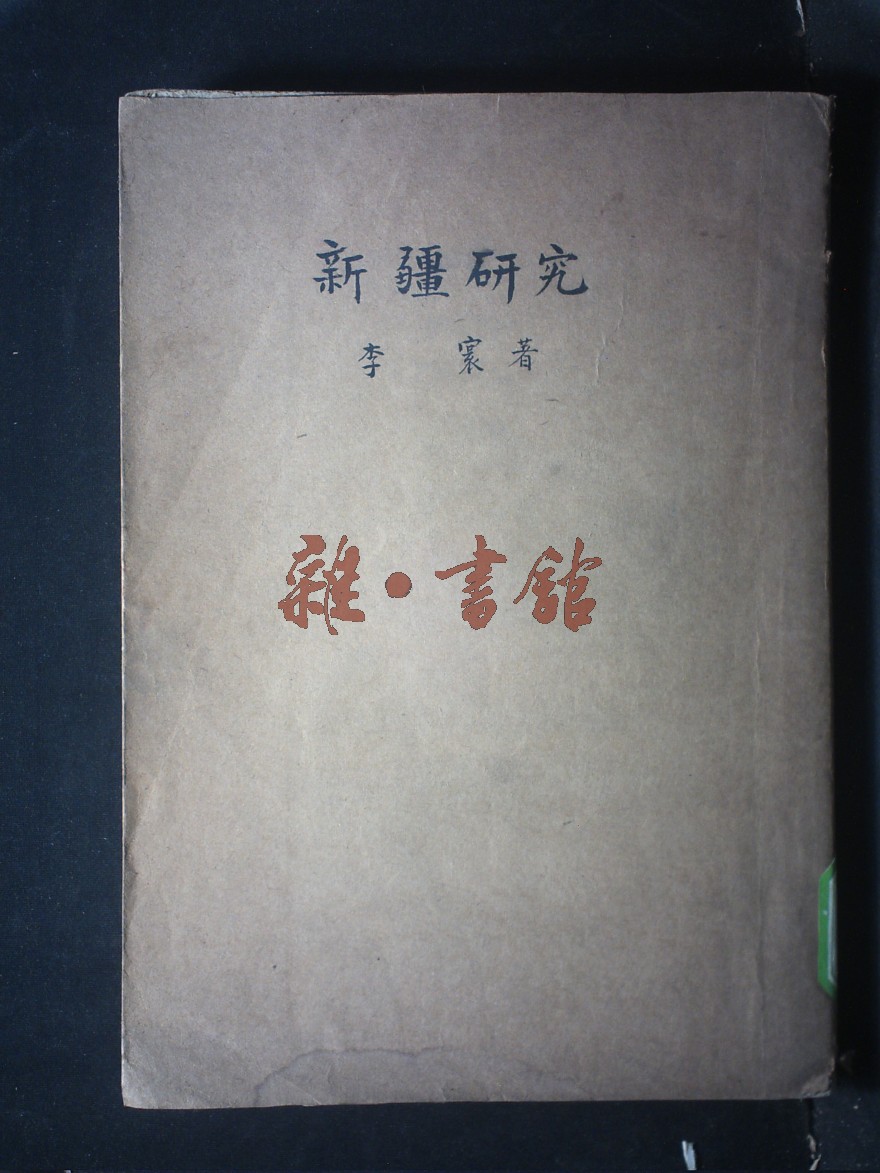 新疆研究
李寰著
雜·書館